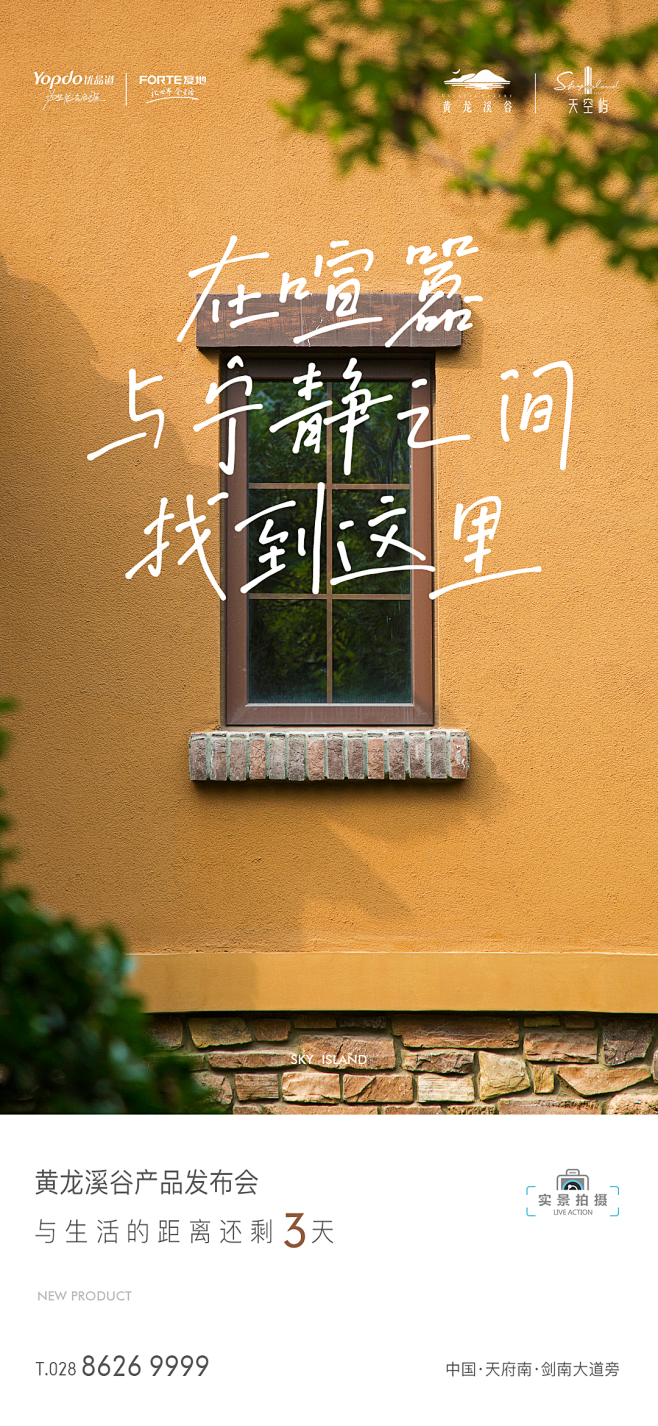 Yopdo优品道
FORTE复地
黄龙溪谷
Sky Island
天空屿
在喧嚣
与宁静之间
找到这里
SKY ISLAND
黄龙溪谷产品发布会
与生活的距离还剩3天
实景拍摄
LIVE ACTION
NEW PRODUCT
T.028 8626 9999
中国·天府南·剑南大道旁